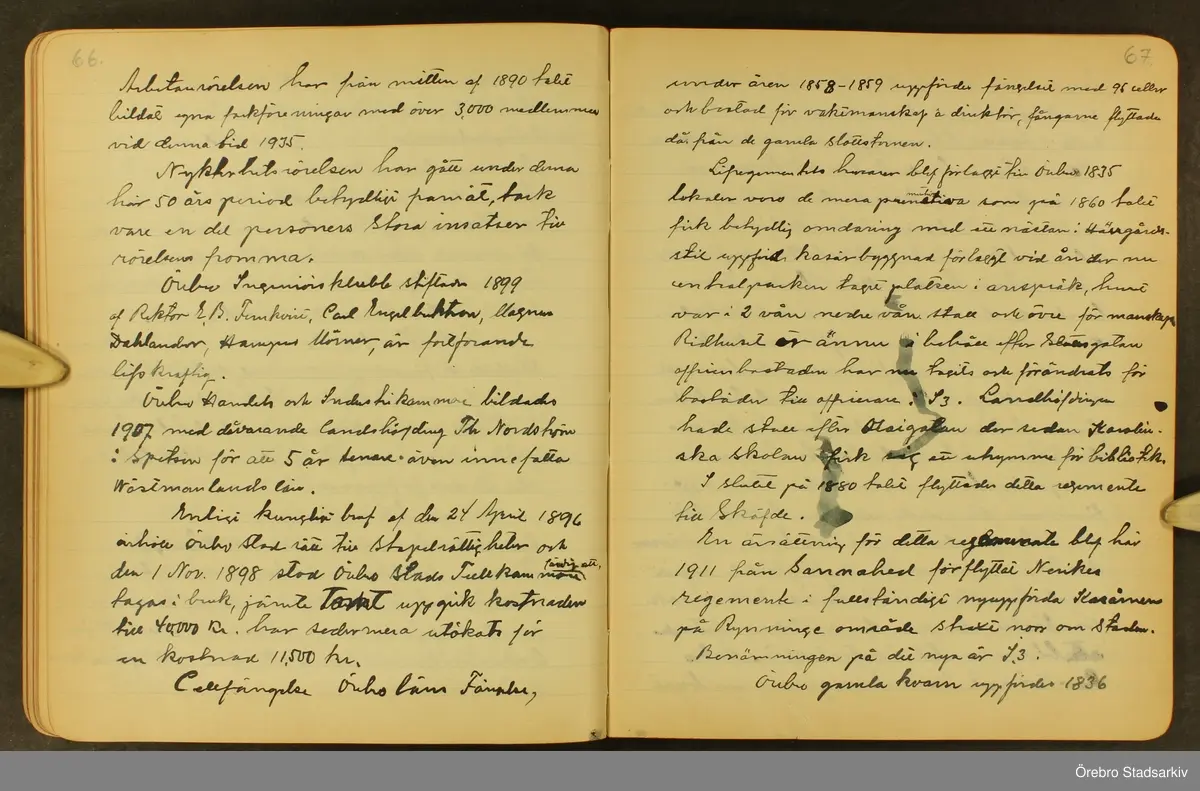 66.
Arbetarrörelsen har från mitten af 1890 talet
bildat egna fackföreningar med över 3,000 medlemmar
vid denna tid 1935.
Nykterhetsrörelsen har gått under denna
här 50 års period betydligt framåt, tack
vare en del personers stora insatser till
rörelsens fromma.
Örebro Ingeniörsklubb stiftades 1899
af Rektor E.B. Carl Engelbrektson, Magnus
Dahlander, Hampus Mörner, är fortforande
lifskraftig.
Örebro Handels och Industrikammare bildades
1907 med dåvarande landshöfding Th Nordström
i spetsen för att 5 år senare även innefatta
Wästmanlands län.
Enligt kungligt bref af den 24 April 1896
erhöll Örebro stad rätt till stapelrättigheter och
den 1 Nov. 1898 stod Örebro stads Tullkammare färdig att
tagas i bruk, jämte uppgick kostnaden
till 40,000 Kr. har sedermera utökats för
en kostnad 11,500 kr.
Cellfängelse Örebro läns Fängelse,
67.
under åren 1858-1859 uppfördes fängelset med 96 celler
och bostad för vaktmanskap o direktör, fångarne flyttade
där från de gamla slottstornen.
Lifregementets husarer blef förlagt till Örebro 1835
lokaler voro de mera primitiva som på 1860 talet
fick betydlig omdaning med ett nästan i Härrgårds-
stil uppförd kasärnbyggnad förlaggt vid ån der nu
centralparken tagit platsen i anspråk, huset
var i 2 vån nedre vån. stall och övre för manskap
Ridhuset är ännu i behåll efter Slottsgatan
officersbostaden har nu tagits och förändrats för
bostäder till officerare i I3. Landshöfdingen
hade stall efter Storgatan der sedan Karolin-
ska skolan fick sig ett utrymme för bibliotek.
I slutet på 1880 talet flyttades detta regemente
till Sköfde.
En ärsättning för detta regemente blef här
1911 från Sannahed förflyttat Nerikes
regemente i fullständigt nyuppförda Kasärnern
på Rynninge område strax norr om staden.
Benämningen på det nya är I3.
Örebro gamla kvarn uppfördes 1836
Örebro Stadsarkiv